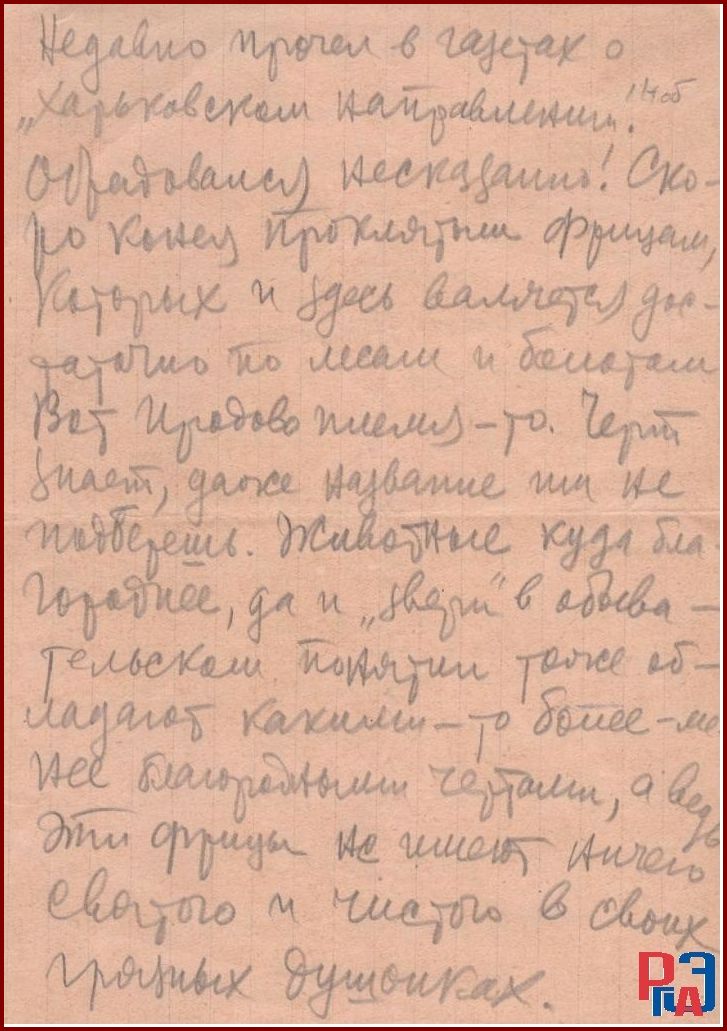 Недавно прочел в газетах о
„Харьковском направлении".
14об
Обрадовался несказанно! Ско-
ро конец проклятым фрицам,
которых и здесь валяется дос-
таточно по лесам и болотам
Вот Иродово племя-то. Черт
знает, даже название им не
подберешь. Животные куда бла-
городнее, да и „звери" в обыва-
тельском понятии тоже об-
ладают какими-то более-ме
нее благородными чертами, а ведь
эти фрицы не имеют ничего
святого и чистого в своих
грязных душонках.
РГАЭ